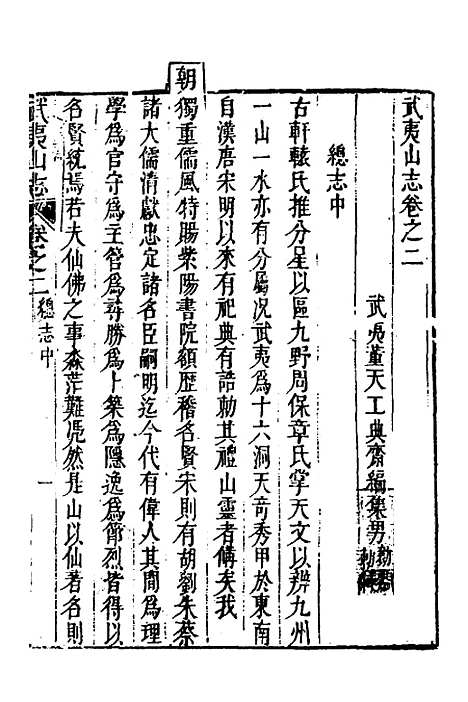 武夷山志卷之二
武夷董天工典齋編集男
總志中
古軒轅氏推分星以區九野周保章氏掌天文以辨九州
一山一水亦有分屬况武夷爲十六洞天竒秀甲於東南
自漢唐宋明以來有祀典有誥勅其禮山靈者備矣我
朝獨重儒風特賜紫陽書院額歷稽名賢宋則有胡劉朱蔡
諸大儒清獻忠定諸名臣嗣明迄今代有偉人其間爲理
學爲官守爲主管爲尋勝爲卜築爲隱逸爲節烈皆得以
名賢統焉若夫仙佛之事森茫難凭然是山以仙著名則
武夷山志 卷之二 總志中 一